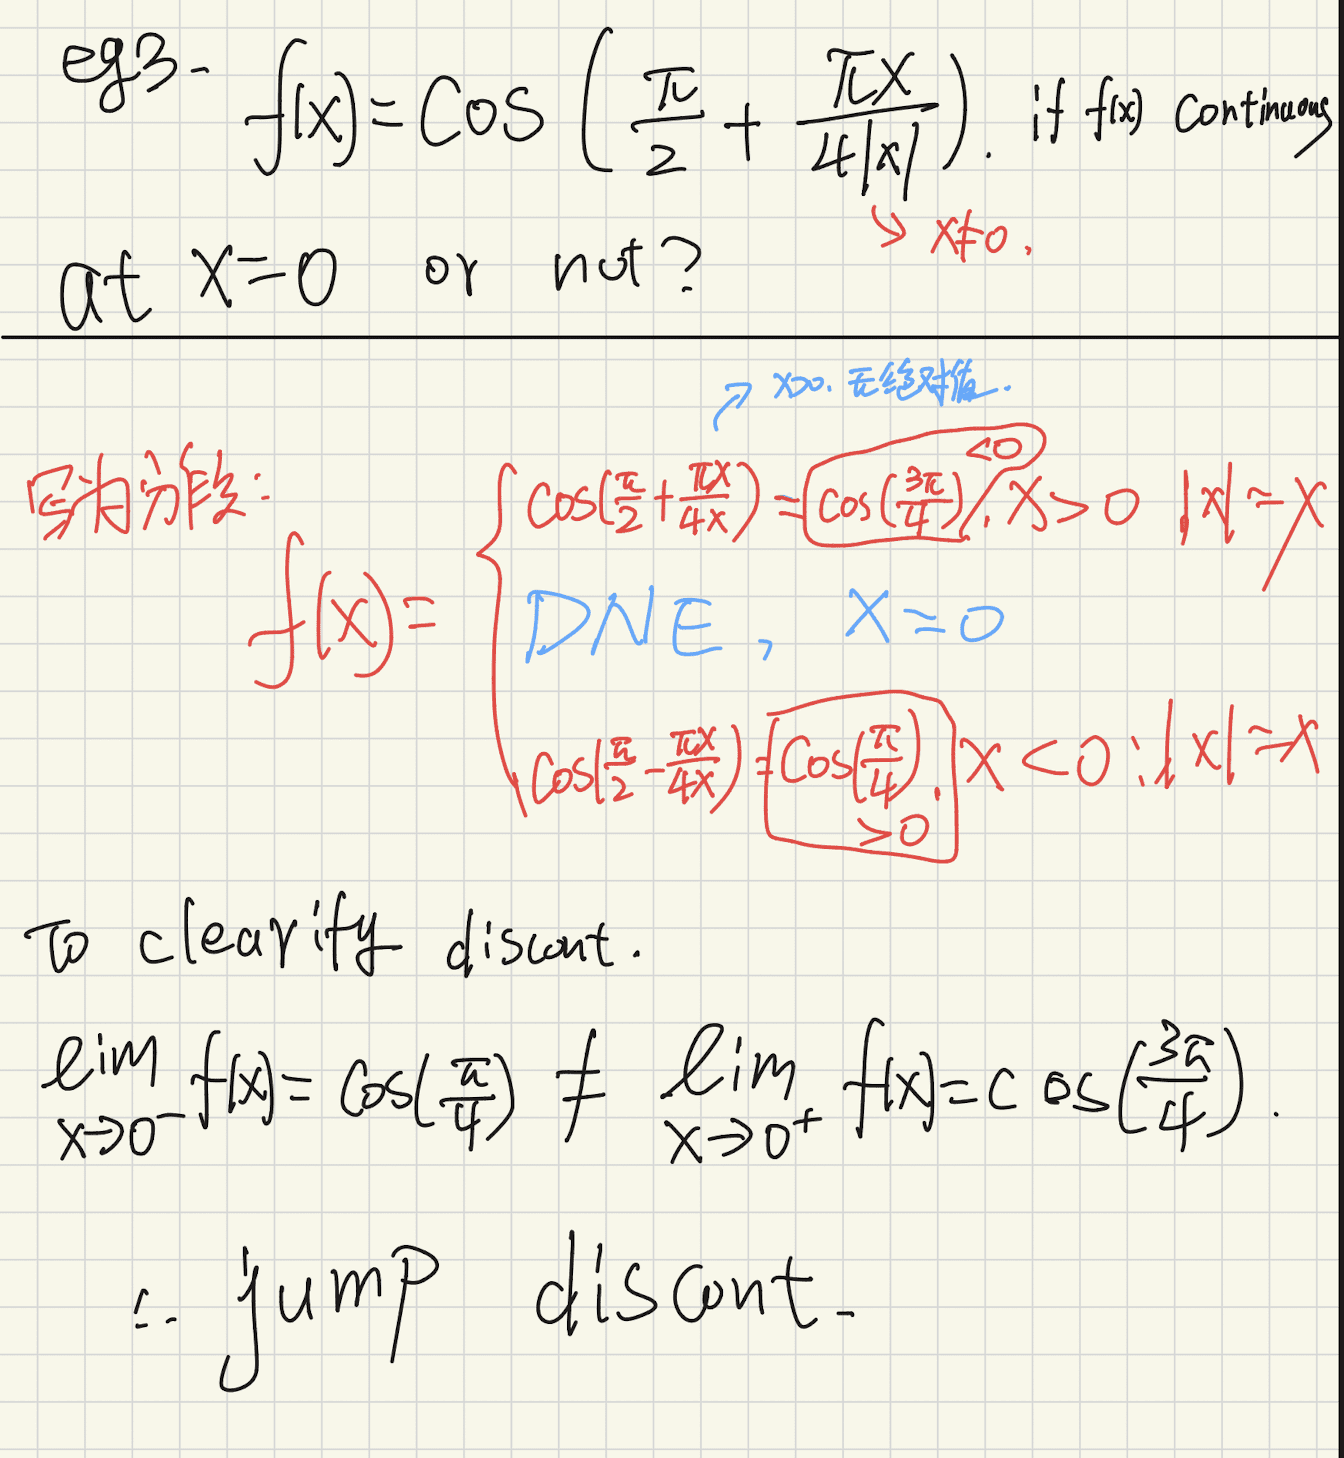 eg3. f(x) = cos(π/2 + πx/4|x|). if f(x) continuous
→ x≠0.
at x=0 or not?
→ x>0. 无绝对值.
写为分段:
cos(π/2 + πx/4x) = cos(3π/4) <0, x>0 |x|=x
f(x) = { DNE, x=0
cos(π/2 - πx/4x) = cos(π/4). >0 x<0: |x|=-x
To clearify discont.
lim x→0⁻ f(x) = cos(π/4) ≠ lim x→0⁺ f(x) = cos(3π/4).
∴ jump discont.